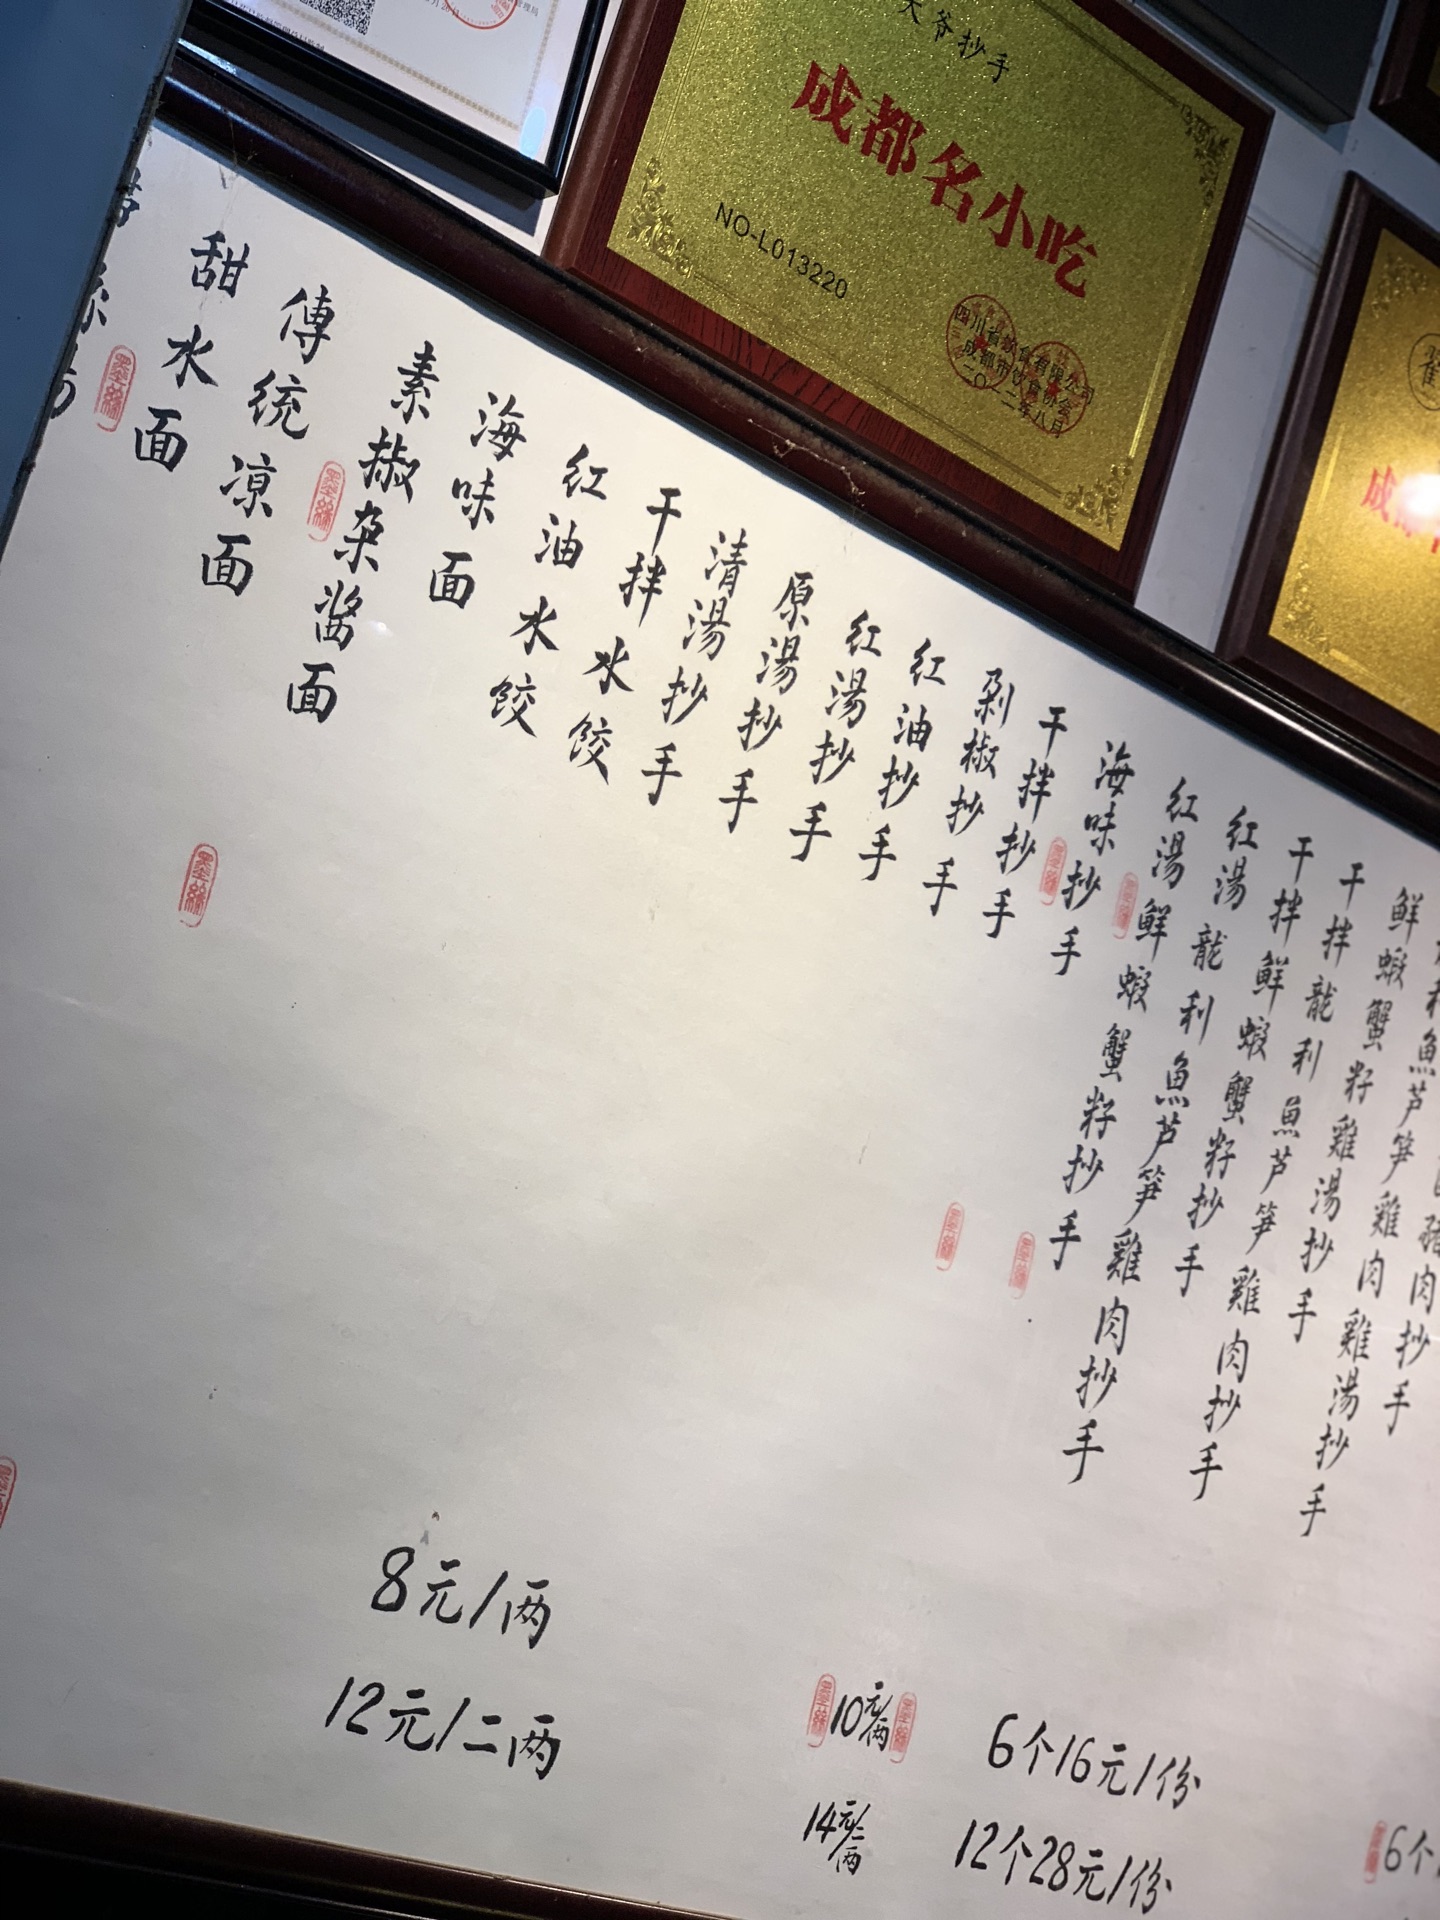 大爷抄手
成都名小吃
NO-L013220
四川省饮食有限公司
成都市饮食协会
二〇一二年八月
鲜蝦蟹芦笋雞肉雞湯抄手
鲜蝦蟹籽雞湯抄手
干拌龍利魚芦笋雞肉抄手
干拌鲜蝦蟹籽抄手
红湯龍利魚芦笋雞肉抄手
红湯鲜蝦蟹籽抄手
海味抄手
干拌抄手
剁椒抄手
红油抄手
红湯抄手
原湯抄手
清湯抄手
干拌水饺
红油水饺
海味面
素椒杂酱面
傳统凉面
甜水面
8元/两
12元/二两
10元/两
14元/二两
6个16元/份
12个28元/份
6个